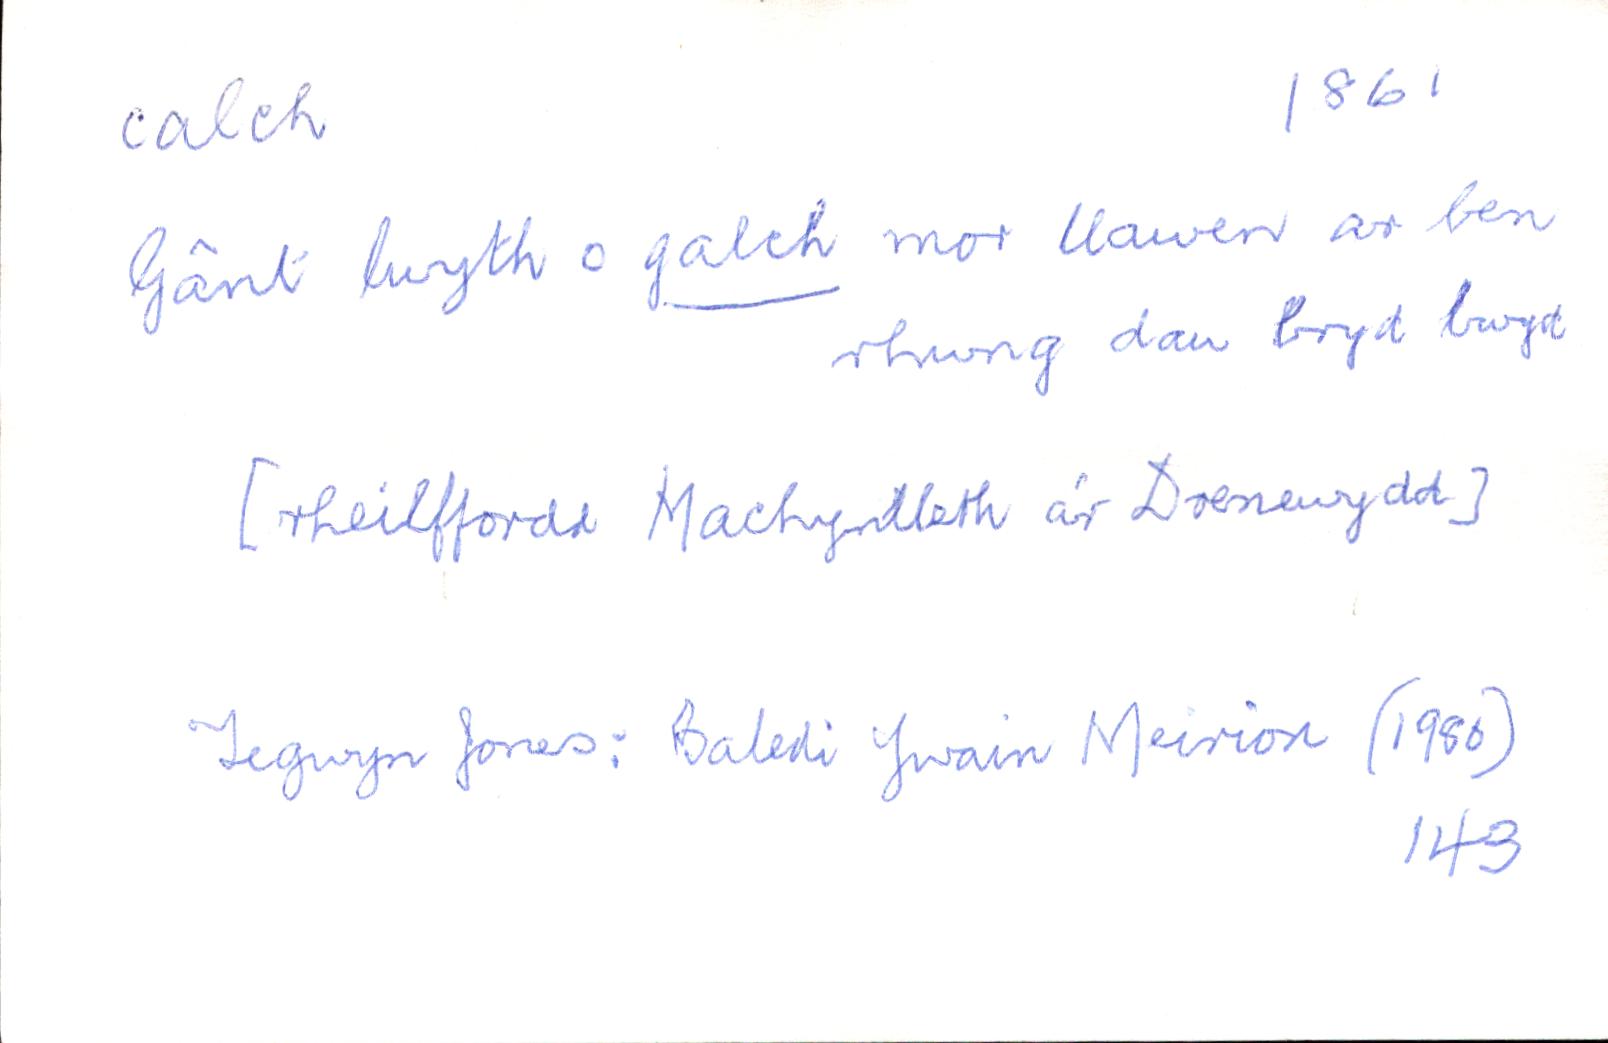 calch 1861
Gânt lwyth o galch mor llawen ar ben
rhwng dau bryd bwyd
[rheilffordd Machynlleth a'r Drenewydd]
Tegwyn Jones: Baledi Ywain Meirion (1980)
143